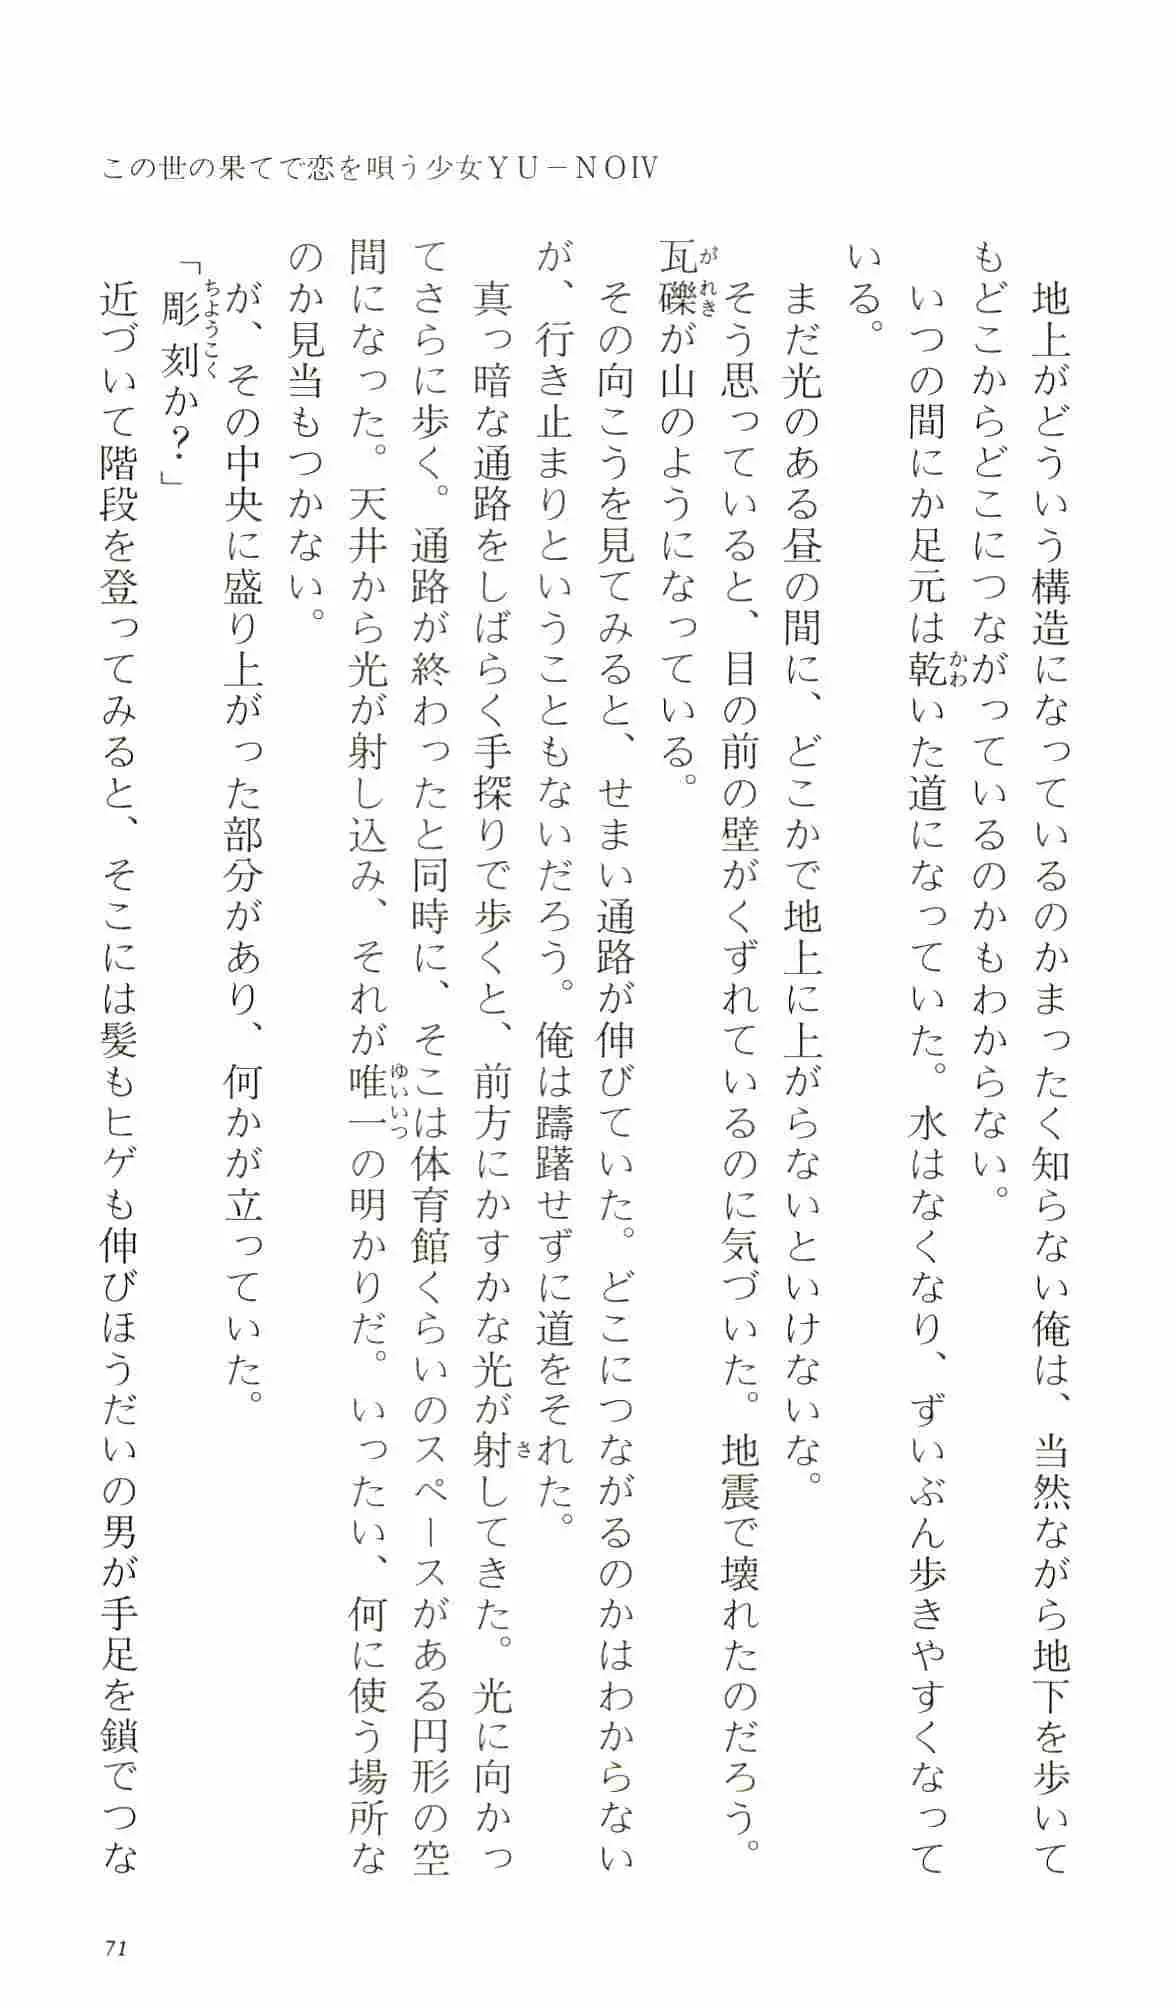 この世の果てで恋を唄う少女ＹＵ－ＮＯⅣ
　地上がどういう構造になっているのかまったく知らない俺は、当然ながら地下を歩いて
もどこからどこにつながっているのかもわからない。
　いつの間にか足元は乾いた道になっていた。水はなくなり、ずいぶん歩きやすくなって
いる。
　まだ光のある昼の間に、どこかで地上に上がらないといけないな。
　そう思っていると、目の前の壁がくずれているのに気づいた。地震で壊れたのだろう。
瓦礫が山のようになっている。
　その向こうを見てみると、せまい通路が伸びていた。どこにつながるのかはわからない
が、行き止まりということもないだろう。俺は躊躇せずに道をそれた。
　真っ暗な通路をしばらく手探りで歩くと、前方にかすかな光が射してきた。光に向かっ
てさらに歩く。通路が終わったと同時に、そこは体育館くらいのスペースがある円形の空
間になった。天井から光が射し込み、それが唯一の明かりだ。いったい、何に使う場所な
のか見当もつかない。
　が、その中央に盛り上がった部分があり、何かが立っていた。
「彫刻か？」
　近づいて階段を登ってみると、そこには髪もヒゲも伸びほうだいの男が手足を鎖でつな
71